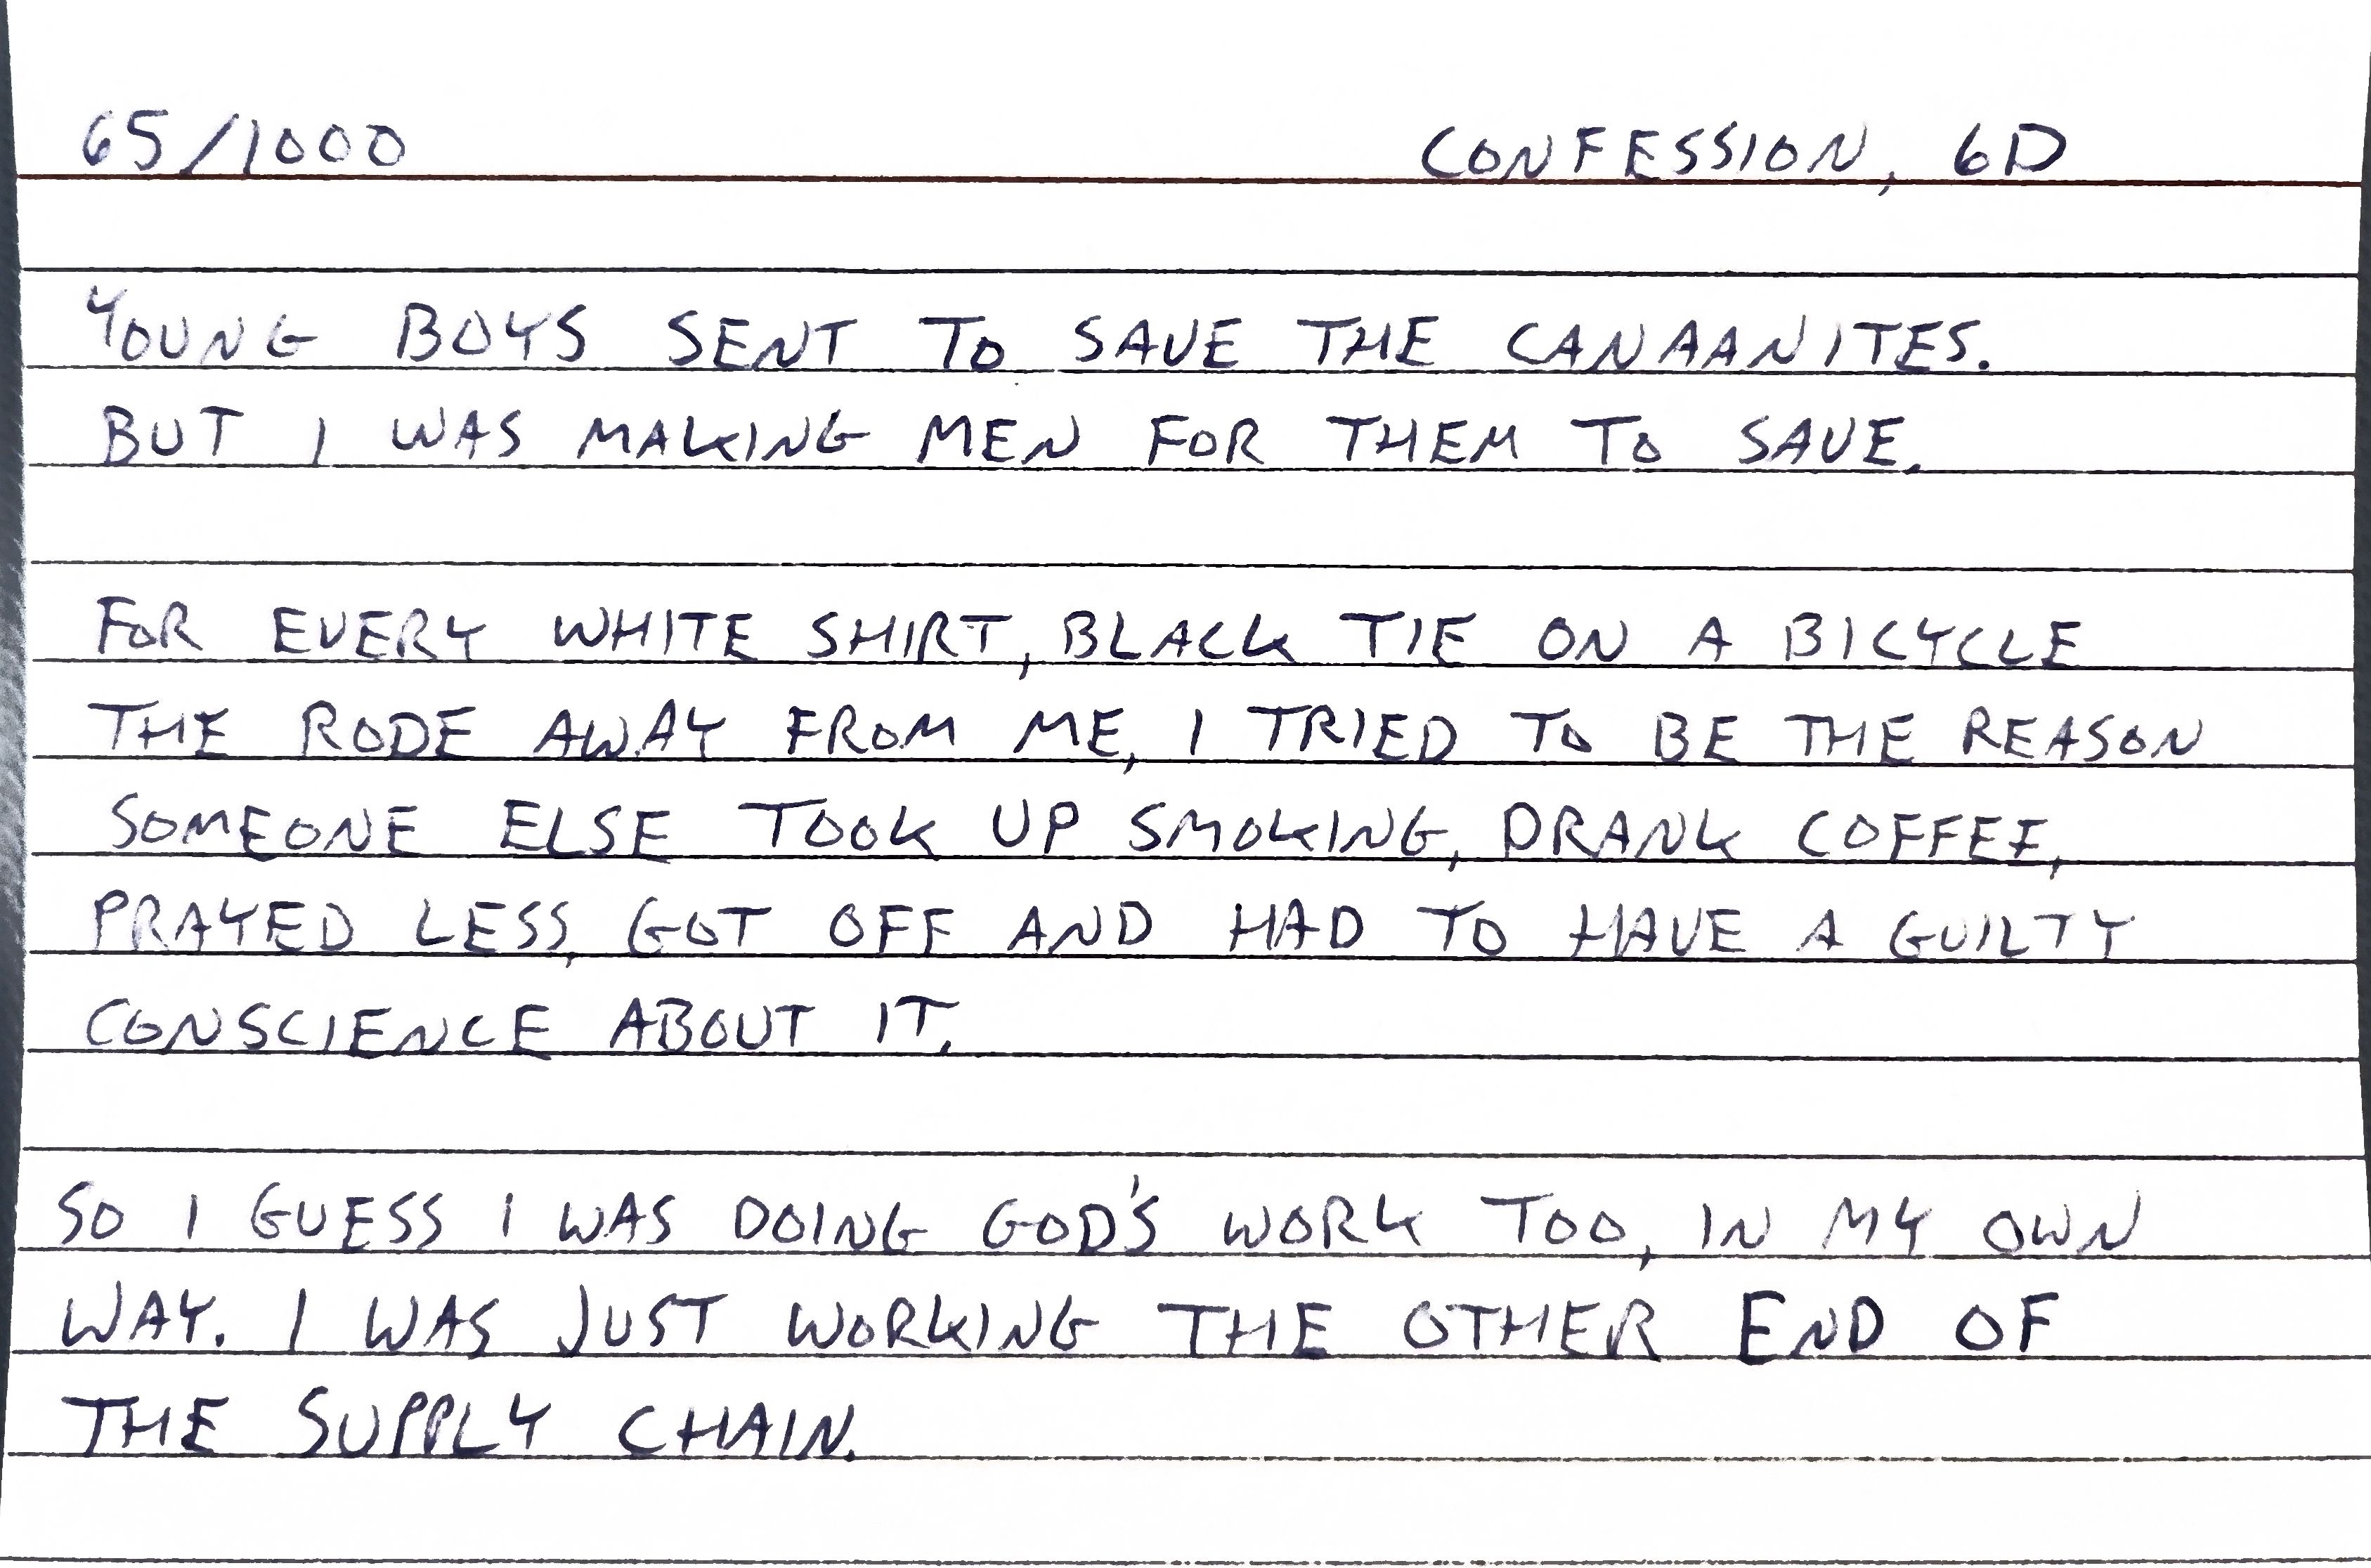 65/1000 CONFESSION, 6D
YOUNG BOYS SENT TO SAVE THE CANAANITES.
BUT I WAS MAKING MEN FOR THEM TO SAVE.
FOR EVERY WHITE SHIRT, BLACK TIE ON A BICYCLE
THE RODE AWAY FROM ME, I TRIED TO BE THE REASON
SOMEONE ELSE TOOK UP SMOKING, DRANK COFFEE,
PRAYED LESS, GOT OFF AND HAD TO HAVE A GUILTY
CONSCIENCE ABOUT IT.
SO I GUESS I WAS DOING GOD'S WORK TOO, IN MY OWN
WAY. I WAS JUST WORKING THE OTHER END OF
THE SUPPLY CHAIN.